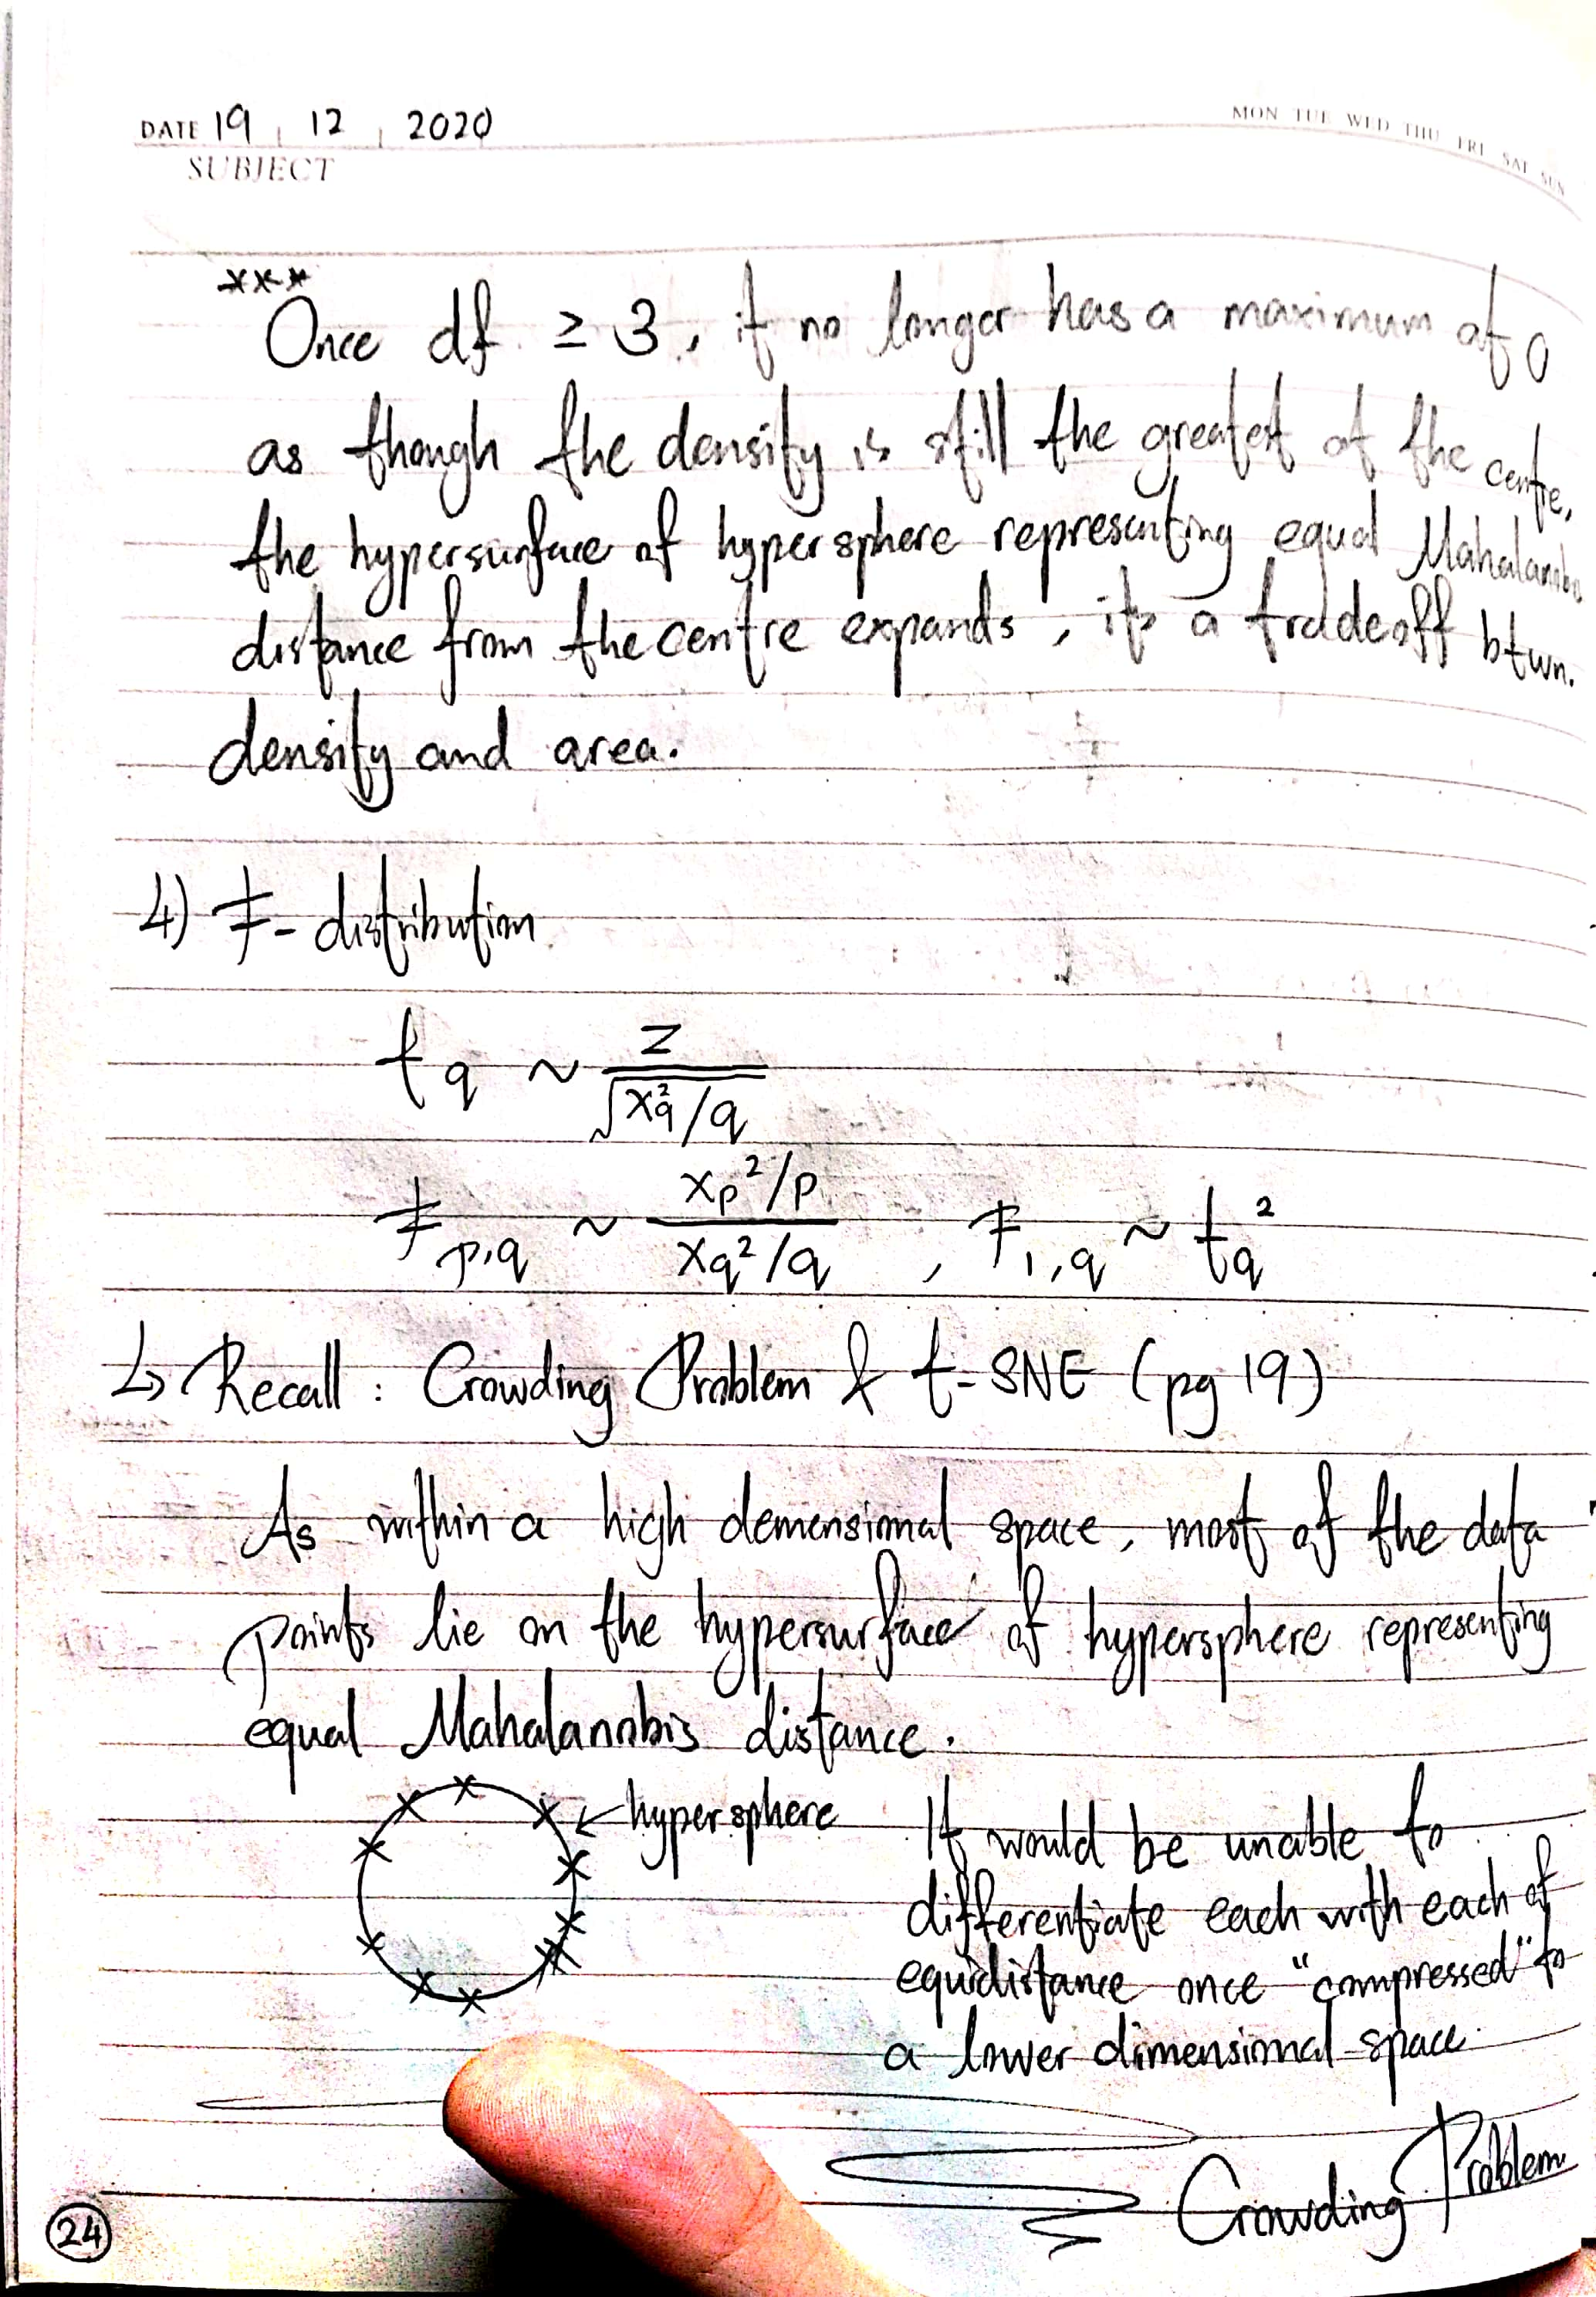 DATE 19 12 2020
MON TUE WED THU FRI SAT SUN
SUBJECT
***
Once df ≥ 3, it no longer has a maximum at 0
as though the density is still the greatest at the centre,
the hypersurface of hypersphere representing equal Mahalanobis
distance from the centre expands, its a tradeoff btwn.
density and area.
4) F-distribution
t_q ~ Z / √(χ²_q/q)
F_p,q ~ (χ_p²/p) / (χ_q²/q) , F_1,q ~ t_q²
↳ Recall : Crowding Problem & t-SNE (pg 19)
As within a high demensional space, most of the data
points lie on the hypersurface of hypersphere representing
equal Mahalanobis distance.
← hypersphere
It would be unable to
differentiate each with each of
equidistance once "compressed" to
a lower dimensional space.
Crowding Problem
24